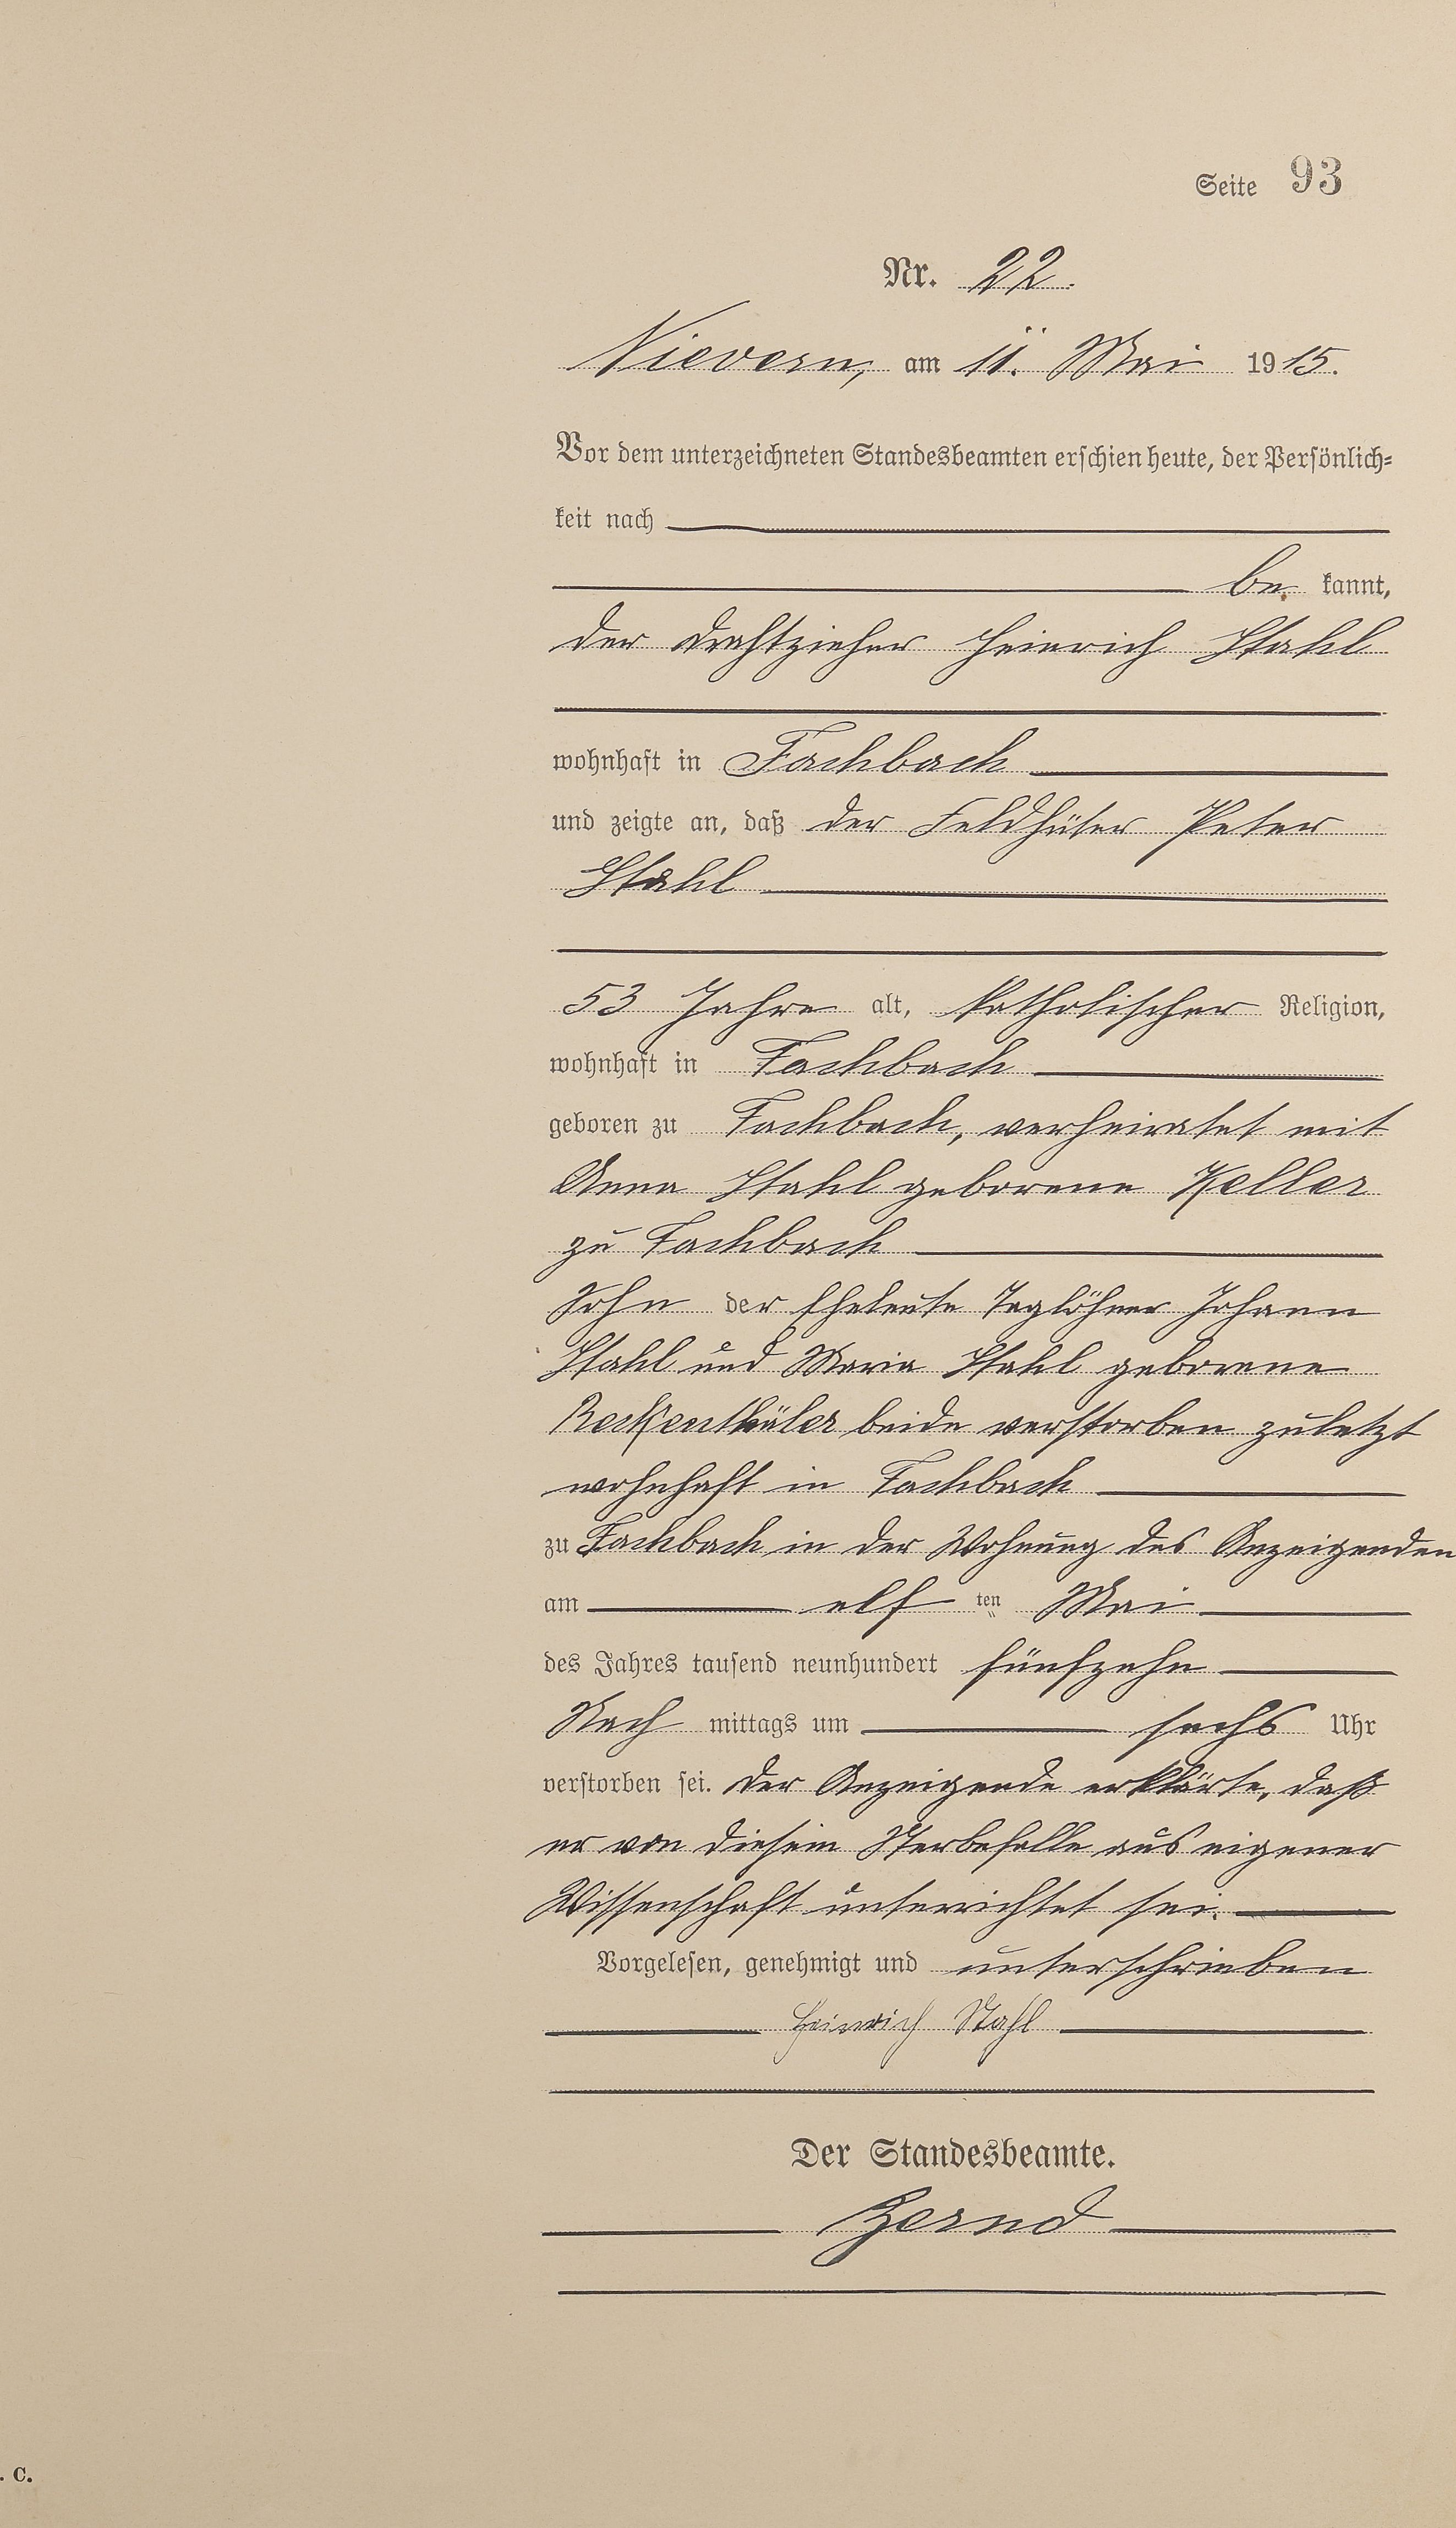 Seite 93
Nr. 22.
Nievern, am 11. Mai 1915.
Vor dem unterzeichneten Standesbeamten erschien heute, der Persönlich=
keit nach
be kannt,
der Drahtzieher Heinrich Stahl
wohnhaft in Fachbach
und zeigte an, daß der Feldhüter Peter
Stahl
53 Jahre alt, katholischer Religion,
wohnhaft in Fachbach
geboren zu Fachbach, verheiratet mit
Anna Stahl geborene Keller
zu Fachbach
Sohn der Eheleute Taglöhner Johann
Stahl und Maria Stahl geborene
Reckenthäler beide verstorben zuletzt
wohnhaft in Fachbach
zu Fachbach in der Wohnung des Anzeigenden
am elf ten Mai
des Jahres tausend neunhundert fünfzehn
Nach mittags um sechs Uhr
verstorben sei. Der Anzeigende erklärte, daß
er von diesem Sterbefalle aus eigener
Wissenschaft unterrichtet sei.
Vorgelesen, genehmigt und unterschrieben
Heinrich Stahl
Der Standesbeamte.
Zernd
. C.